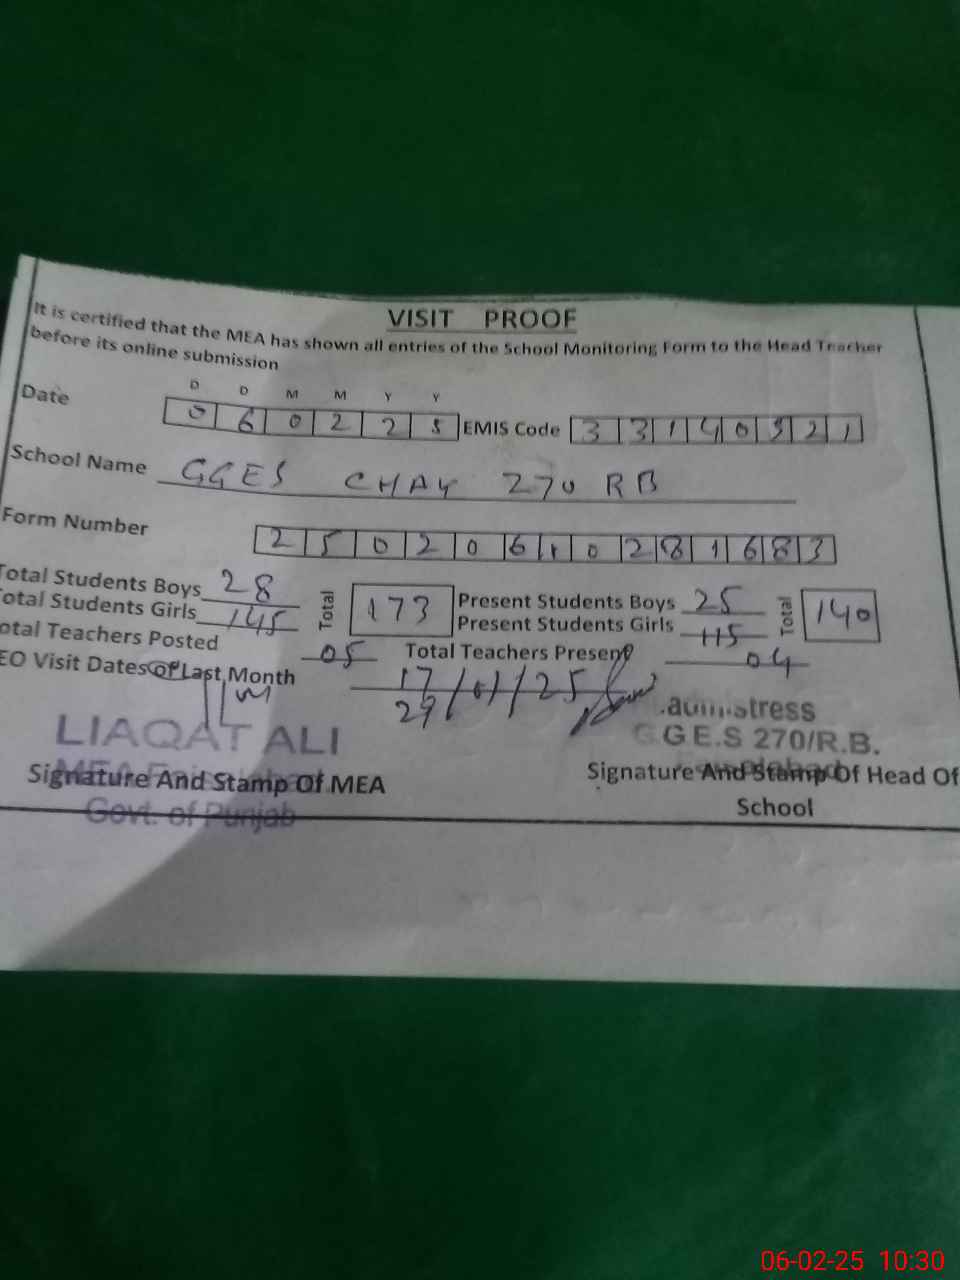 VISIT PROOF
It is certified that the MEA has shown all entries of the School Monitoring Form to the Head Teacher
before its online submission
D D M M Y Y
Date 0 6 0 2 2 5 EMIS Code 3 3 1 4 0 3 2 1
School Name GGES CHAK 270 RB
Form Number 2 5 0 2 0 6 1 0 2 8 1 6 8 3
Total Students Boys 28 Total 173 Present Students Boys 25 Total 140
otal Students Girls 145 Present Students Girls 115
otal Teachers Posted 05 Total Teachers Present 04
EO Visit Dates of Last Month 17/01/25
29
LIAQAT ALI
.admistress
G.G.E.S 270/R.B.
Signature And Stamp Of MEA
Signature And Stamp Of Head Of
School
Govt. of Punjab
06-02-25 10:30